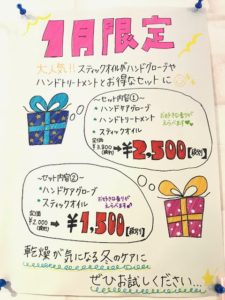 1月限定
大人気!! スティックオイルがハンドグローブや
ハンドトリートメントとお得なセットに
～セット内容①～
・ハンドケアグローブ
・ハンドトリートメント
・スティックオイル
お好きな香りが
えらべます
定価
(税別)
→¥2,500【税別】
～セット内容②～
・ハンドケアグローブ
・スティックオイル
お好きな香りが
えらべます
定価
¥2,000
(税別)
→¥1,500【税別】
乾燥が気になる冬のケアに
ぜひお試しください…